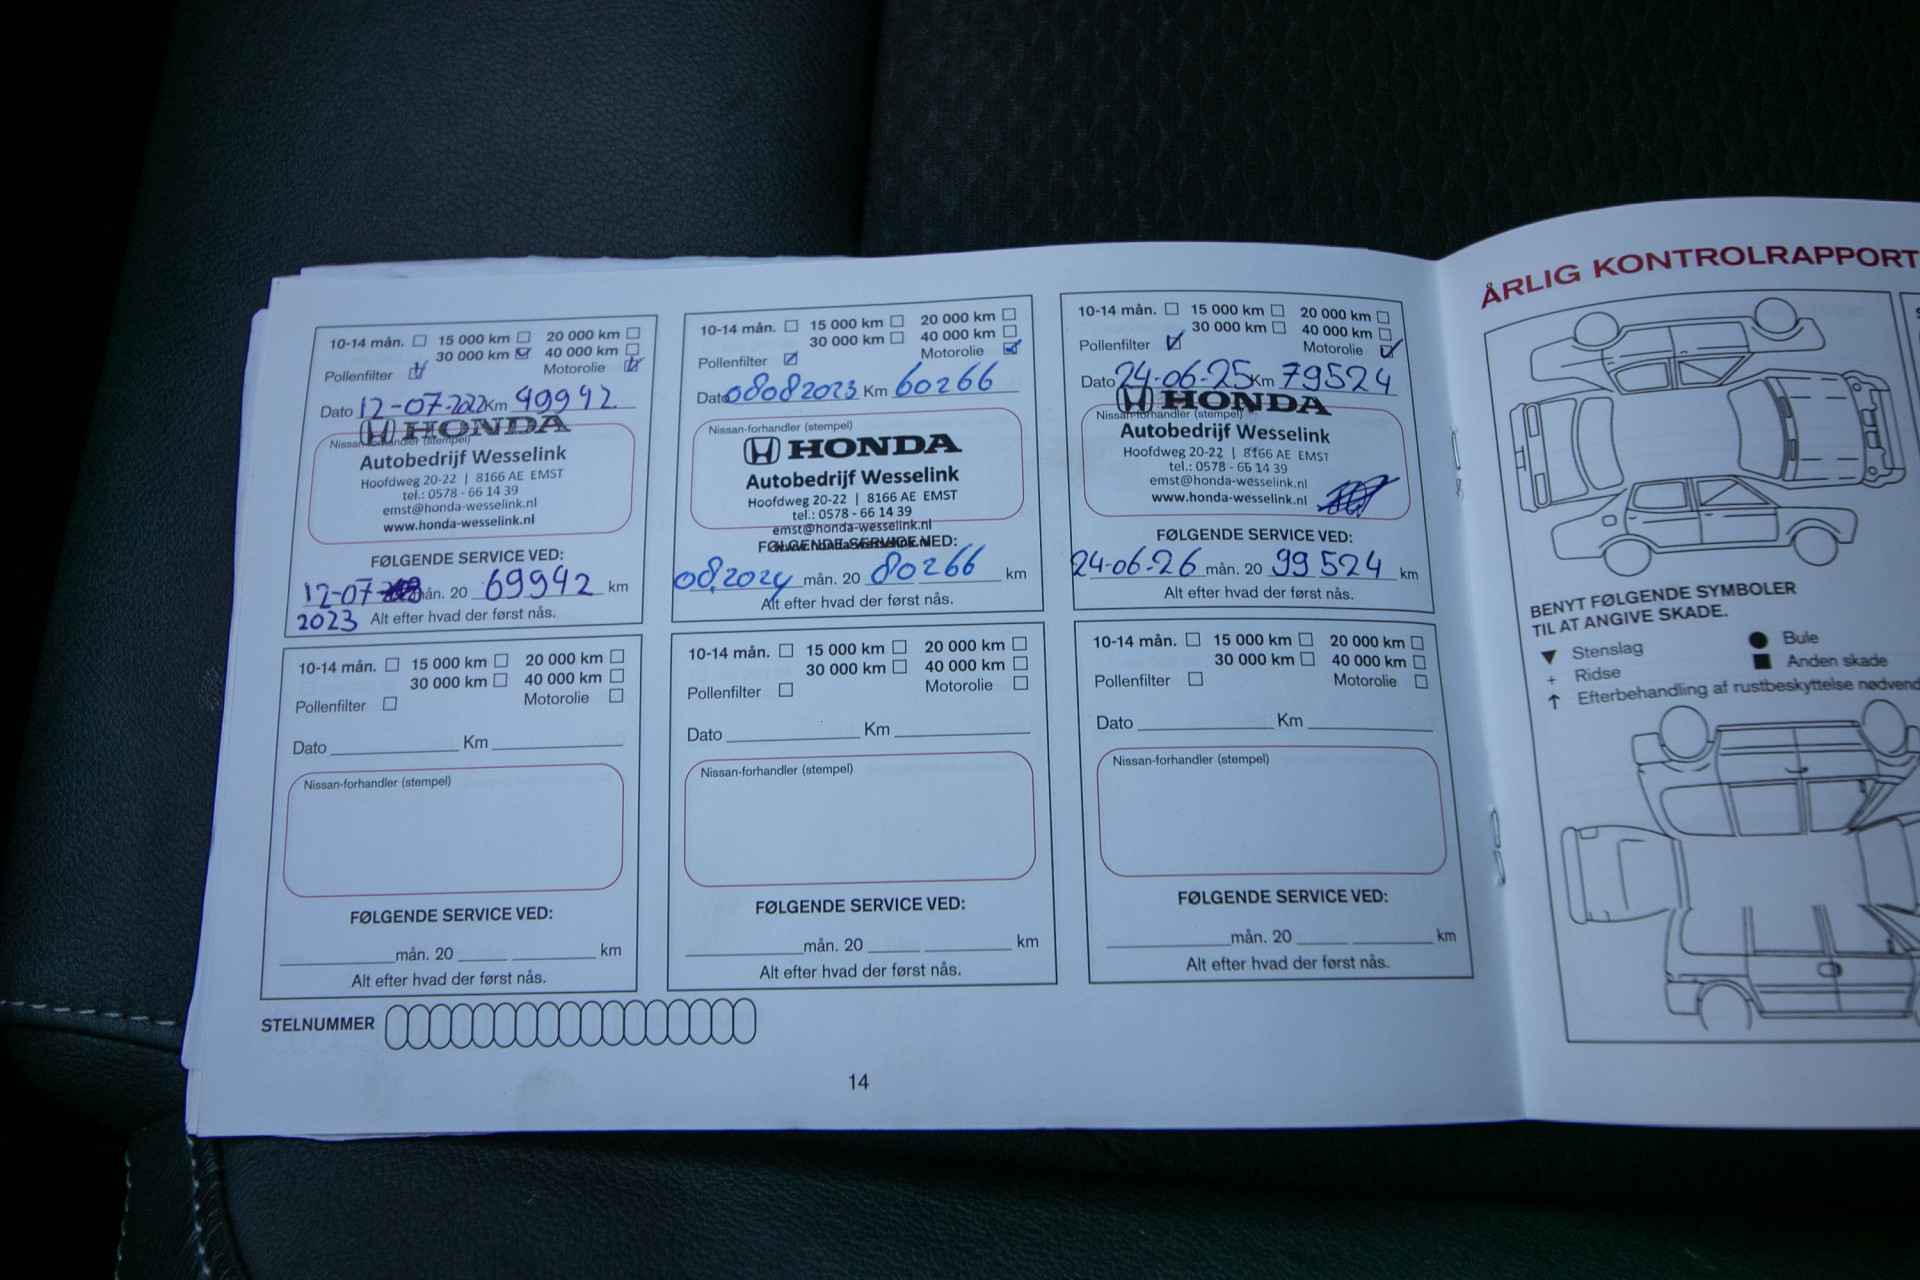 10-14 mån. 15 000 km 20 000 km
30 000 km 40 000 km
Pollenfilter Motorolie
Dato 12-07-2022 Km 49942
Nissan-forhandler (stempel)
HONDA
Autobedrijf Wesselink
Hoofdweg 20-22 | 8166 AE EMST
tel.: 0578 - 66 14 39
emst@honda-wesselink.nl
www.honda-wesselink.nl
FØLGENDE SERVICE VED:
12-07 mån. 20 69942 km
2023 Alt efter hvad der først nås.
10-14 mån. 15 000 km 20 000 km
30 000 km 40 000 km
Pollenfilter Motorolie
Dato 08082023 Km 60266
Nissan-forhandler (stempel)
HONDA
Autobedrijf Wesselink
Hoofdweg 20-22 | 8166 AE EMST
tel.: 0578 - 66 14 39
emst@honda-wesselink.nl
www.honda-wesselink.nl
FØLGENDE SERVICE VED:
08.2024 mån. 20 80266 km
Alt efter hvad der først nås.
10-14 mån. 15 000 km 20 000 km
30 000 km 40 000 km
Pollenfilter Motorolie
Dato 24-06-25 Km 79524
Nissan-forhandler (stempel)
HONDA
Autobedrijf Wesselink
Hoofdweg 20-22 | 8166 AE EMST
tel.: 0578 - 66 14 39
emst@honda-wesselink.nl
www.honda-wesselink.nl
FØLGENDE SERVICE VED:
24-06-26 mån. 20 99524 km
Alt efter hvad der først nås.
10-14 mån. 15 000 km 20 000 km
30 000 km 40 000 km
Pollenfilter Motorolie
Dato Km
Nissan-forhandler (stempel)
FØLGENDE SERVICE VED:
mån. 20 km
Alt efter hvad der først nås.
10-14 mån. 15 000 km 20 000 km
30 000 km 40 000 km
Pollenfilter Motorolie
Dato Km
Nissan-forhandler (stempel)
FØLGENDE SERVICE VED:
mån. 20 km
Alt efter hvad der først nås.
10-14 mån. 15 000 km 20 000 km
30 000 km 40 000 km
Pollenfilter Motorolie
Dato Km
Nissan-forhandler (stempel)
FØLGENDE SERVICE VED:
mån. 20 km
Alt efter hvad der først nås.
STELNUMMER
14
ÅRLIG KONTROLRAPPORT
BENYT FØLGENDE SYMBOLER
TIL AT ANGIVE SKADE.
Stenslag Bule
+ Ridse Anden skade
Efterbehandling af rustbeskyttelse